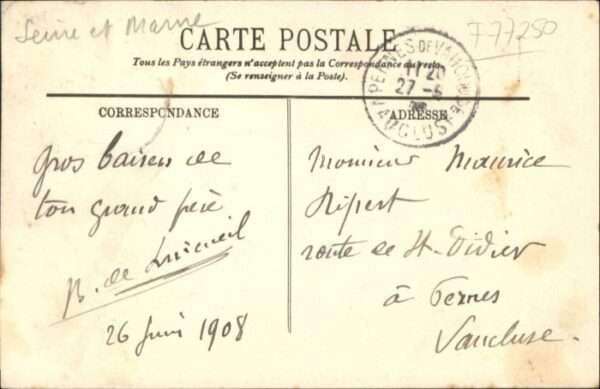 Seine et Marne
F 77250
CARTE POSTALE
Tous les Pays étrangers n'acceptent pas la Correspondance au recto.
(Se renseigner à la Poste).
PERNES-DE-VAUCLUSE
11 20
27 - 6
VAUCLUSE
CORRESPONDANCE
ADRESSE
Gros baisers de
ton grand père
B. de
26 Juin 1908
Monsieur Maurice
Ripert
route de St. Didier
à Pernes
Vaucluse.